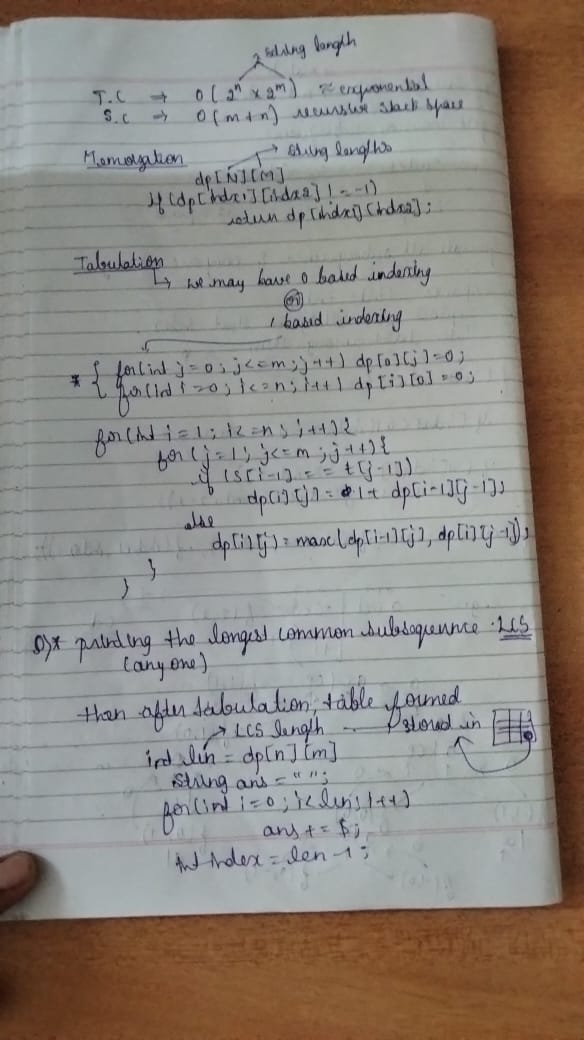 2 string length
T.C → O(2ⁿ x 2ᵐ) ≈ exponential
S.C → O(m+n) recursive stack space
Memoization → string lengths
dp[N][M]
if (dp[indx1][indx2] != -1)
return dp[indx1][indx2];
Tabulation
↳ we may have 0 based indexing
or
1 based indexing
* { for(int j=0; j<=m; j++) dp[0][j]=0;
for(int i=0; i<=n; i++) dp[i][0]=0;
for(int i=1; i<=n; i++){
for(j=1; j<=m; j++){
if (s[i-1] == t[j-1])
dp[i][j] = 1+ dp[i-1][j-1];
else
dp[i][j] = max(dp[i-1][j], dp[i][j-1]);
}
}
Q)* printing the longest common subsequence : LCS
(any one)
then after tabulation, table formed
→ LCS length stored in
int len = dp[n][m]
string ans = " ";
for(int i=0; i<len; i++)
ans += $;
int index = len -1;